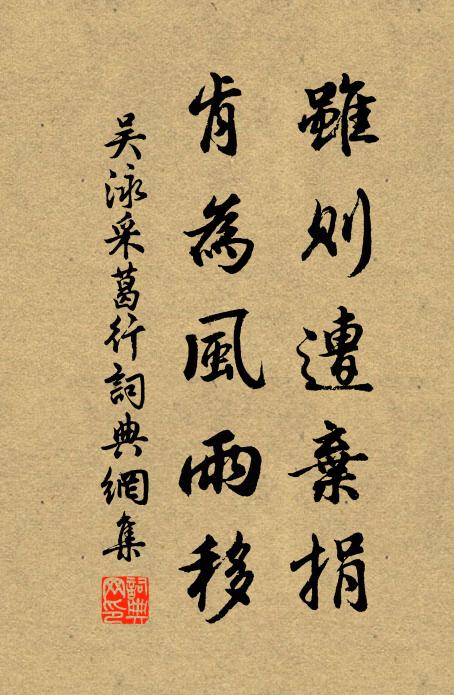 雖則遭棄捐
肯為風雨移
吳泳采葛行詞典網集
詞典網印